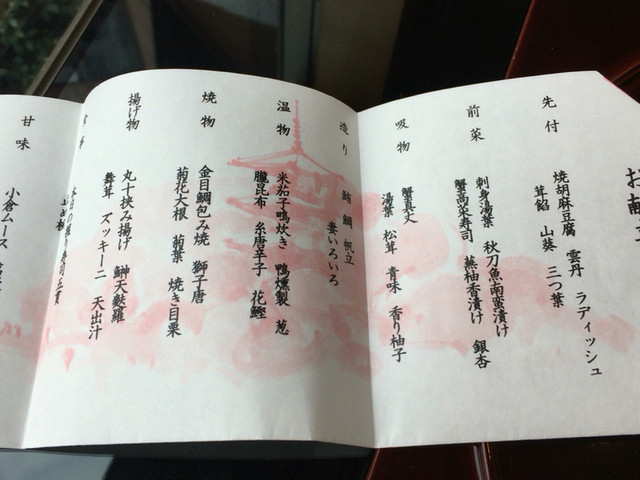 お献立
先付
焼胡麻豆腐 雲丹 ラディッシュ
茸餡 山葵 三つ葉
前菜
刺身湯葉 秋刀魚南蛮漬け
蟹高菜寿司 蕪柚香漬け 銀杏
吸物
蟹真丈
湯葉 松茸 青味 香り柚子
造り
鮪 鯛 帆立
妻いろいろ
温物
米茄子鳴炊き 鴨燻製 葱
朧昆布 糸唐辛子 花鰹
焼物
金目鯛包み焼 獅子唐
菊花大根 菊葉 焼き目栗
揚げ物
丸十挟み揚げ 鰰天麩羅
舞茸 ズッキーニ 天出汁
食事
寿司五貫
甘味
小倉ムース